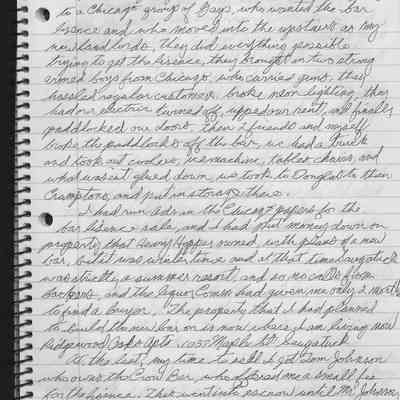 to a Chicago group of Gays, who wanted the bar
lisence and who moved into the upstairs as my
new landlords, they did everything possible
trying to get the lisence, they brought in two strong
armed boys from Chicago, who carried guns, they
hassled regular customers, broke neon lighting, they
had our electric turned off, upped our rent, and finally
paddlocked our doors, then 2 friends and myself
broke the paddlocks off the bar, we had a truck
and took out coolers, ice machine, tables chairs, and
what wasn't glued down we took to Douglas to then
Cramptons, and put in storage there.
I had run ads in the Chicago papers for the
bar lisence sale, and I had put money down on
property that Henry Hopper owned, with plans of a new
bar, but it was winter time and at that time Saugatuck
was strictly a summer resort, and so no calls from
backers, and the liquor Comm had given me only 2 months
to find a buyer. The property that I had planned
to build the new bar on is now where I am living now
Ridgewood Oaks Apts. 1035 Maple St Saugatuck
At the last, my time to sell I got Tom Johnson
who owns the Crow Bar, who offered me a small fee
for the lisence. That went into escrow until Mr Johnson